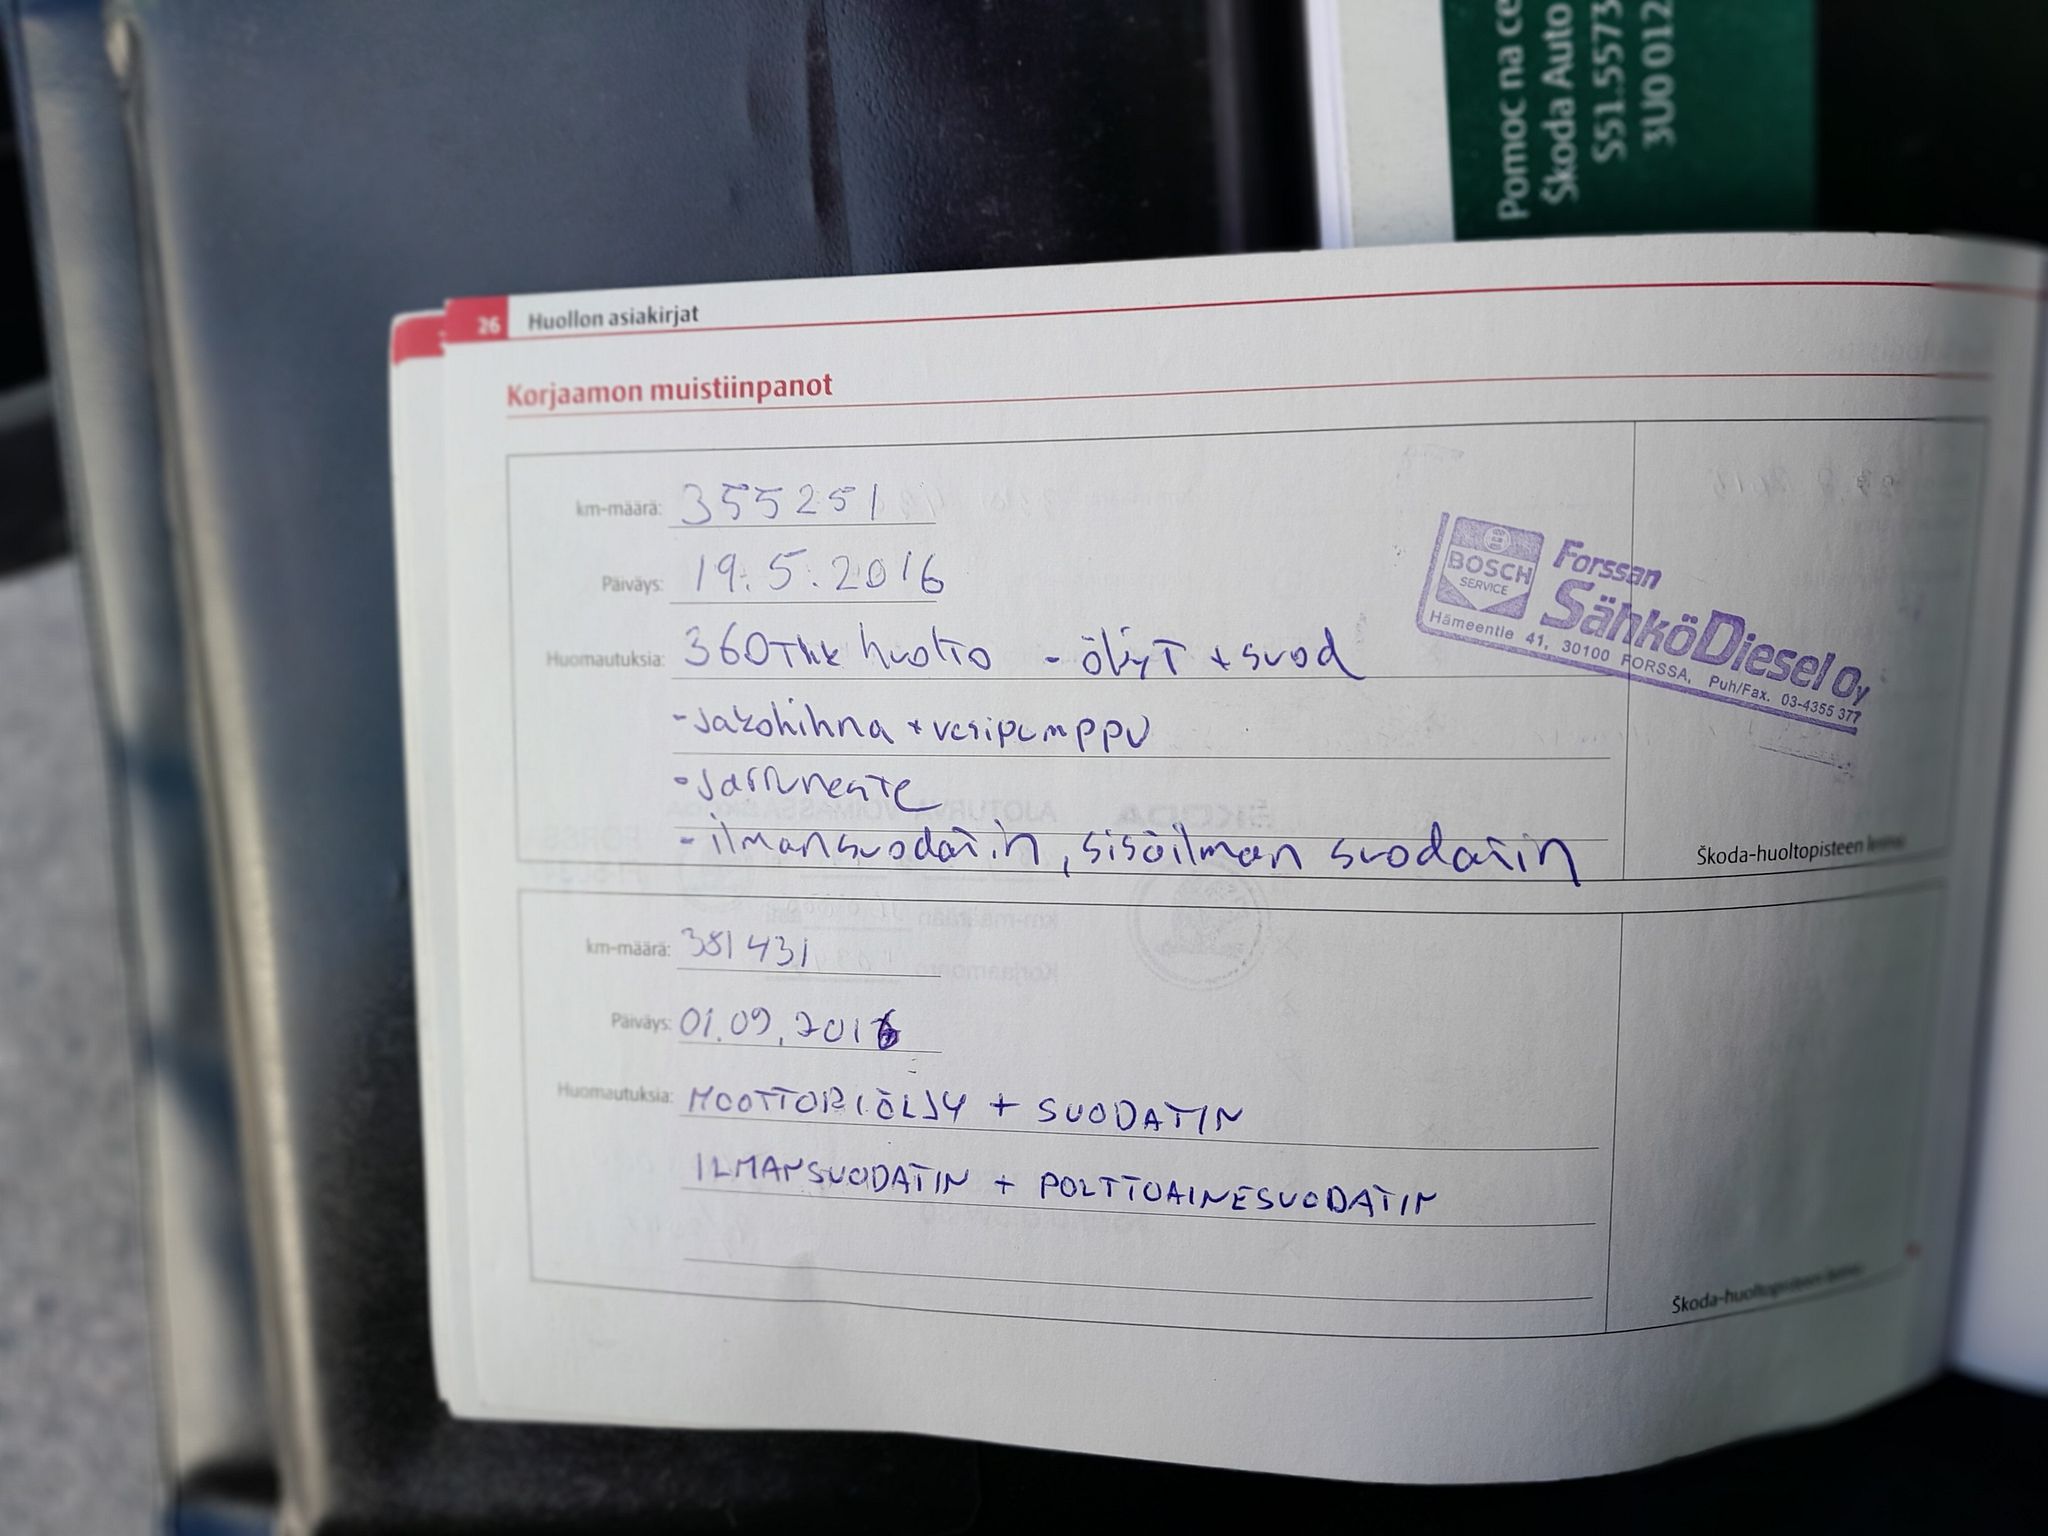 Pomoc na ce
Škoda Auto
S51.5573
3U0 012
26 Huollon asiakirjat
Korjaamon muistiinpanot
km-määrä: 355251
Päiväys: 19.5.2016
Huomautuksia: 360Tkk huolto - öljyt + suod
- Jakohihna + vesipumppu
- Jarruneste
- ilmansuodatin, sisäilman suodatin
BOSCH
SERVICE
Forssan
SähköDiesel Oy
Hämeentie 41, 30100 FORSSA, Puh/Fax. 03-4355 377
Škoda-huoltopisteen leima
km-määrä: 381431
Päiväys: 01.09.2016
Huomautuksia: MOOTTORIÖLJY + SUODATIN
ILMANSUODATIN + POLTTOAINESUODATIN
Škoda-huoltopisteen leima